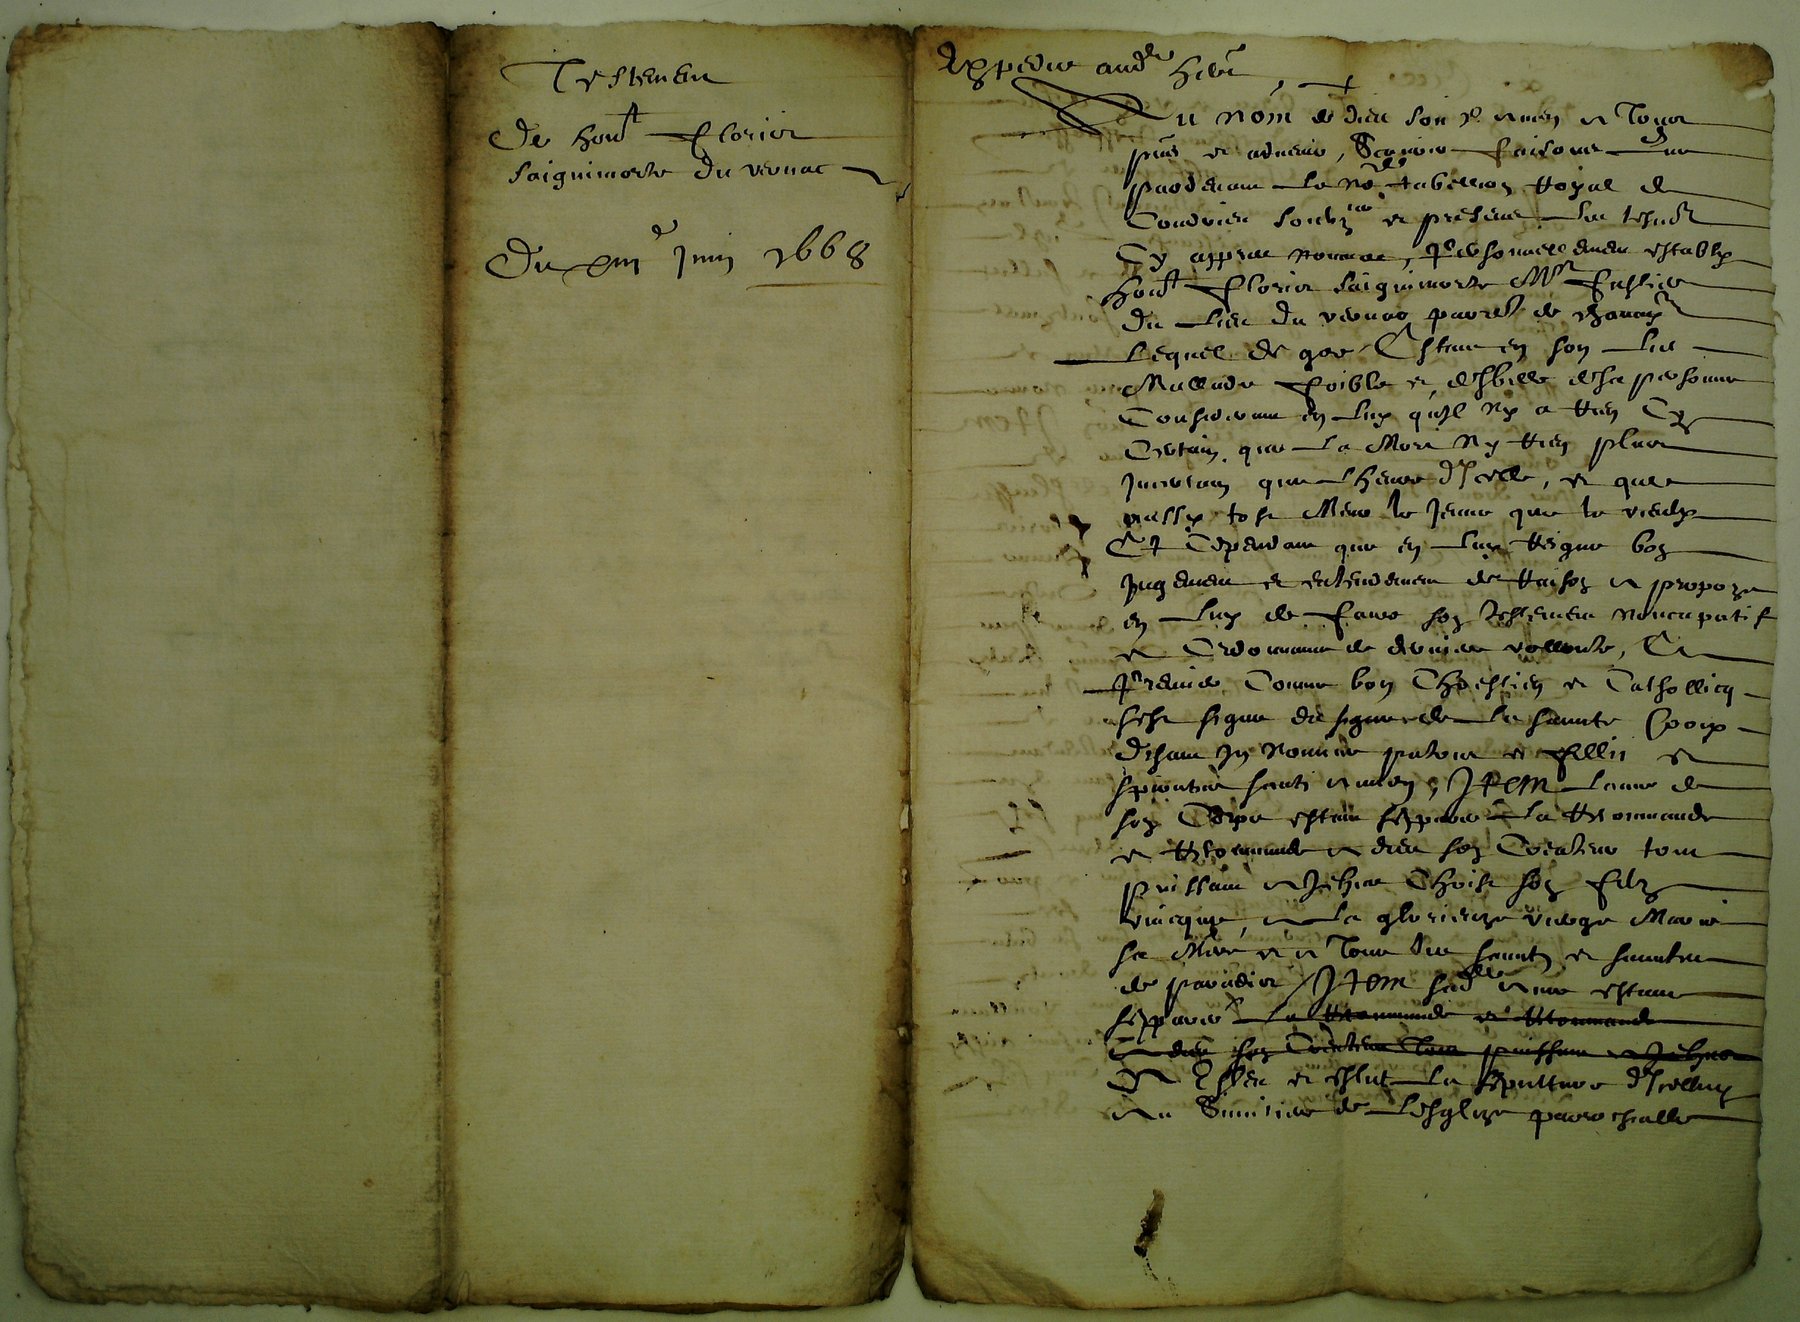 Testement
De hont Florior
saiguimorte du vernac
Du xiii e juin 1668
Expedie aud hers
Au nom de dieu soit et amen a Tous
pns et advenir, Scavoir Faisons que
pardevant le no.re tabellion Royal de
Condrieu soubz.ne et presens les tesm
Cy appres nommes, personnellement estably
hont Florior saiguimorte M.r
du lieu du vernac parro de
Lequel de gre Estant en son lit
Mallade Foible et desbille de sa personne
Considerant en luy quil ny a Rien Cy
Certain que la Mort Ny Rien plus
incertain que lheure dIcelle, et que
aussy tost Meur le Jeune que le vieulx
Et Cependant que en luy Reigne bon
jugement et entendement de Raison a propoze
en luy de Faire son testement noncupatif
et Ordonnance de derniere vollonte, Et
Premier Comme bon Chrestien et Catholicq
sest signe du signe de la sainte Croix
disant In Nomine patris et fillii et
spiritus santi amen, Item lame de
son Corps estant separee la Recommande
et Recommande a dieu son Createur tout
puissant a Jesus Christ son filz
unicque, a la glorieuze vierge Marie
sa Mere et a Tous les saintz et saintes
de paradis / Item sad.te ame estant
separee la Recommande et Recommande
A dieu son Createur Tout puissant a Jesus
A Esleu et eslit la sepulture dIcelluy
Au Simitiere de Lesglize parrochialle